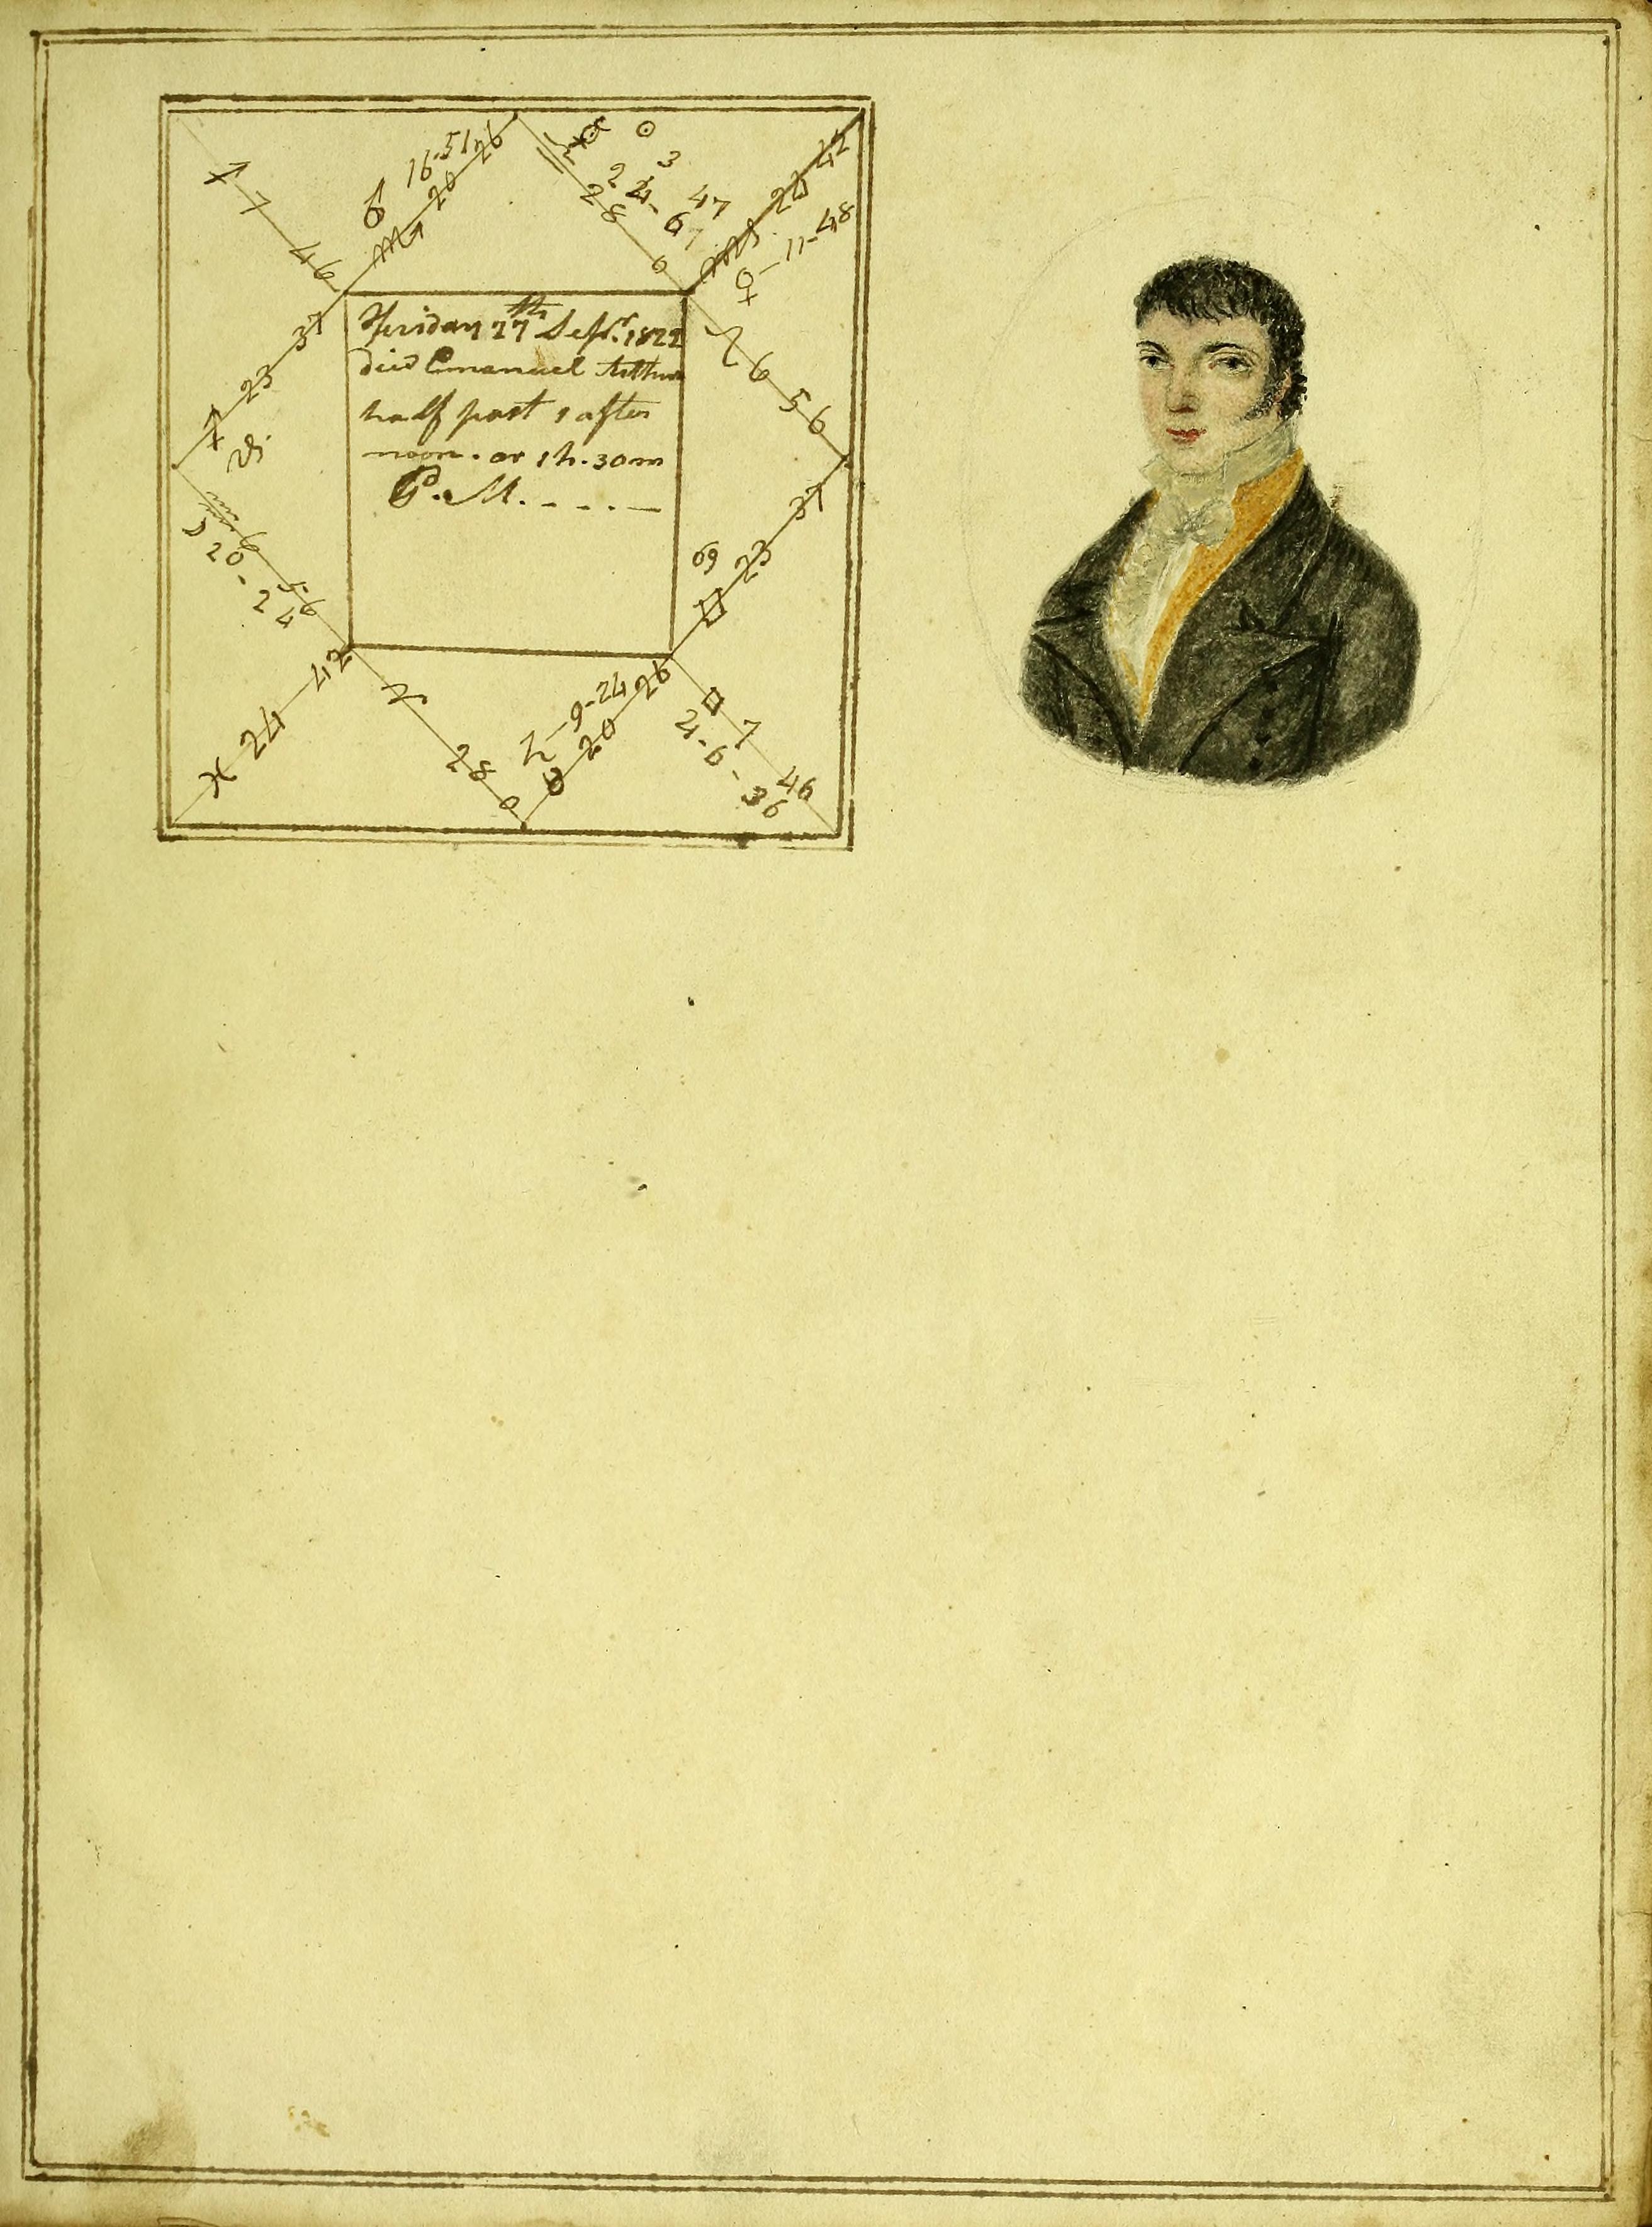 Friday 27th Sepr. 1822
died Emanuel
half past 1 after
noon. or 1h. 30m
P. M. - - - -
16-51
20 26
♂
♏
♐ 7 46
☉ 3 47
28 0
24 42
♀ -11-48
♌ 6 56
♐ 23 37
♑
☽ 20-24
♒ 6 56
♋ 23 37
♓ 24 42
♈ 28 0
♄ -9-24
♉ 20 26
♊ 7 46
♃ -6-36